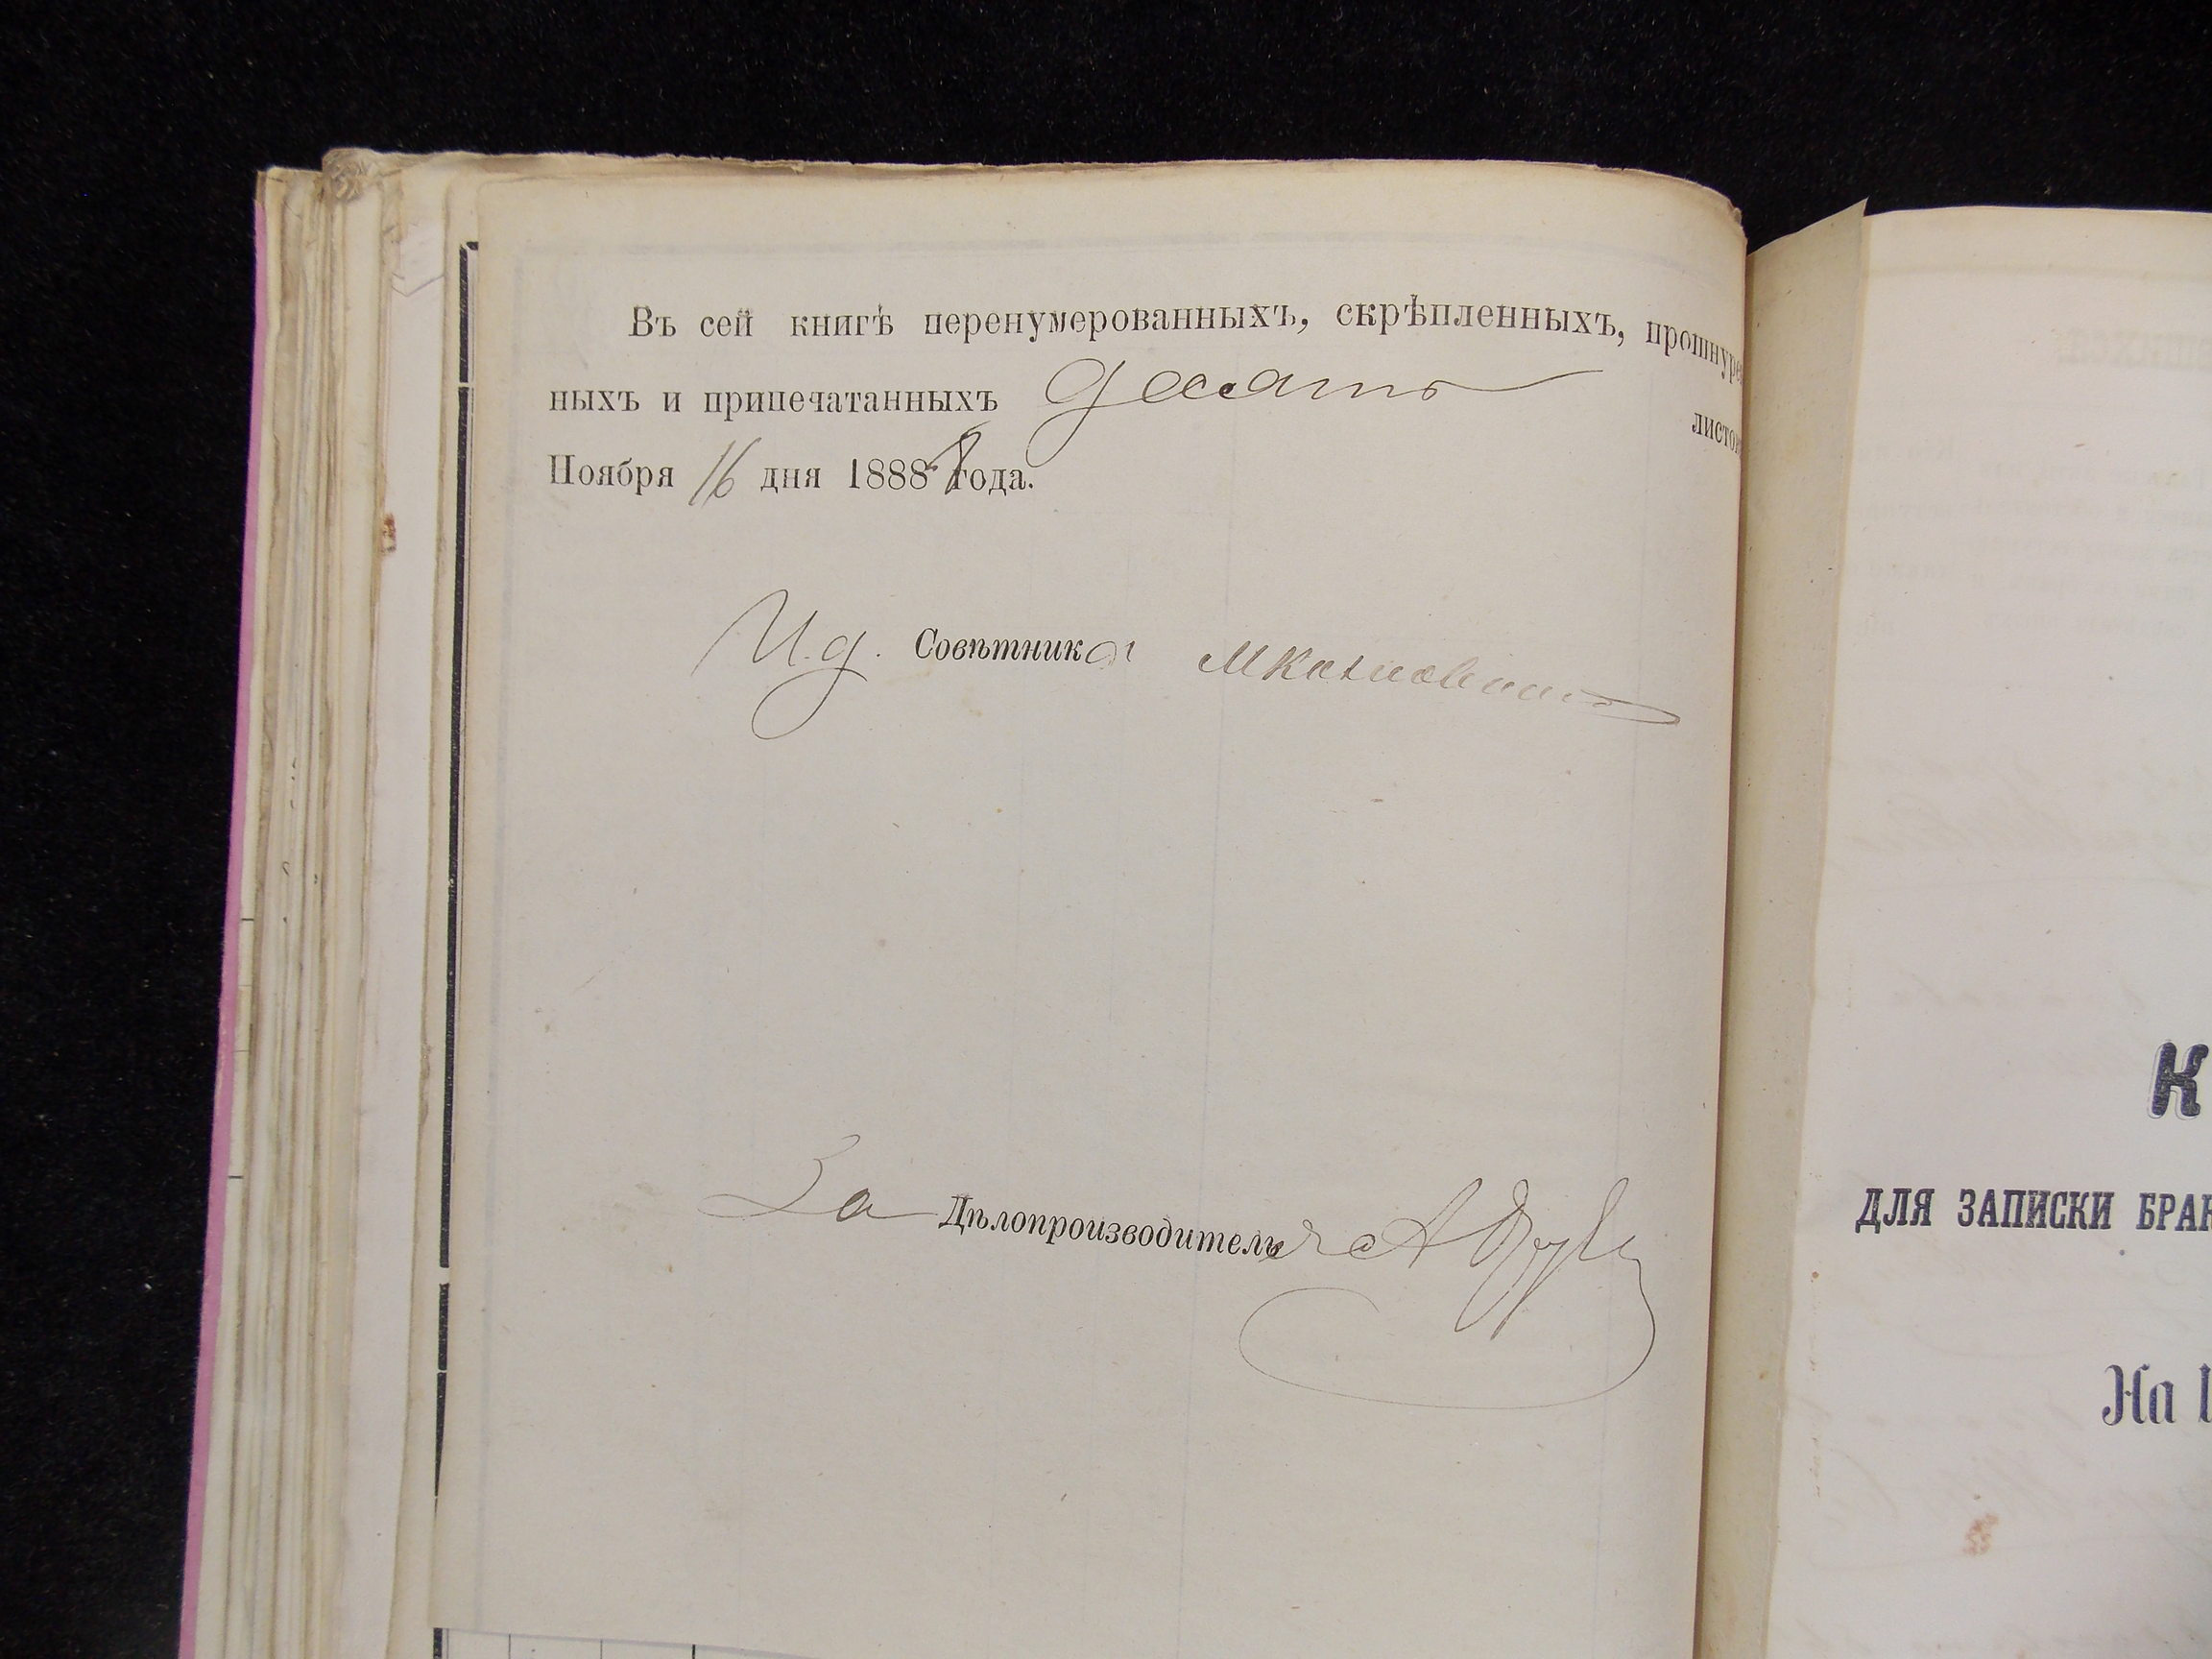 Въ сей книгѣ перенумерованныхъ, скрѣпленныхъ, прошнуро
ныхъ и припечатанныхъ десять
листов
Ноября 16 дня 1888 года.
И.д. Совѣтника
За Дѣлопроизводителя
К
ДЛЯ ЗАПИСКИ БРАК
На 1